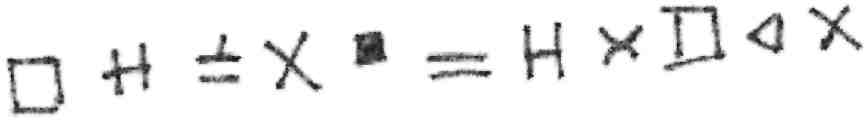 □ H X ■ = H × □ ◁ X